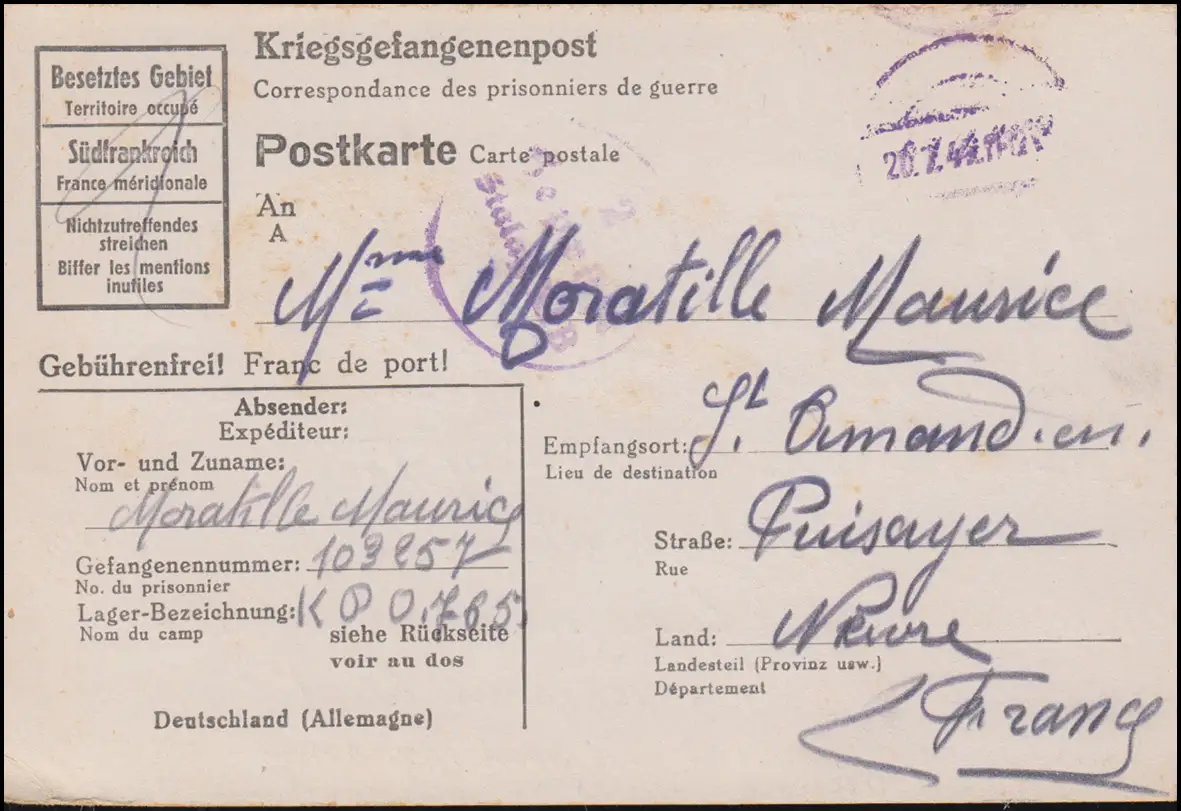 Besetztes Gebiet
Territoire occupé
Südfrankreich
France méridionale
Nichtzutreffendes
streichen
Biffer les mentions
inutiles
Kriegsgefangenenpost
Correspondance des prisonniers de guerre
Postkarte Carte postale
An
A
Mme Moratille Maurice
Gebührenfrei! Franc de port!
Absender:
Expéditeur:
Vor- und Zuname:
Nom et prénom
Moratille Maurice
Gefangenennummer: 103257
No. du prisonnier
Lager-Bezeichnung:
Nom du camp
siehe Rückseite
voir au dos
Deutschland (Allemagne)
Empfangsort: St. Amand.en.
Lieu de destination
Straße: Puisayer
Rue
Land: Nièvre
Landesteil (Provinz usw.)
Département
France
2
Stalag
B